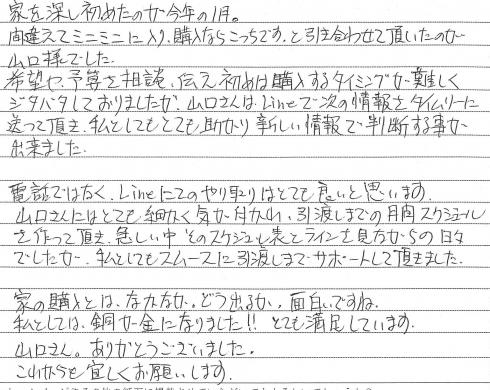 家を探し初めたのが今年の1月。
間違えてミニミニに入り、購入ならこっちです。と引き合わせて頂いたのが
山口様でした。
希望や、予算を相談、伝え初めは購入するタイミングが難しく
ジタバタしておりましたが、山口さんは、Lineで次の情報をタイムリーに
送って頂き、私としてもとても助かり新しい情報で判断する事が
出来ました。
電話ではなく、Lineにてのやり取りはとても良いと思います。
山口さんにはとても細かく気が付かれ、引渡しまでの月間スケジュール
を作って頂き、忙しい中そのスケジュール表とラインを見ながらの日々
でしたが、私としてもスムーズに引渡しまでサポートして頂きました。
家の購入とは、なかなか。どう出るか、面白いですね。
私としては、銅が金になりました!! とても満足しています。
山口さん。ありがとうございました。
これからも宜しくお願いします。